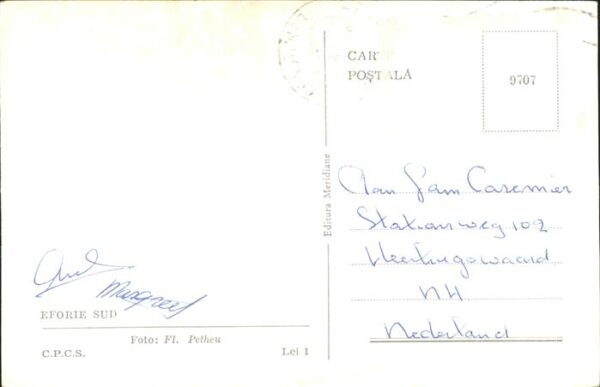 CARTE
POȘTALĂ
9707
Editura Meridiane
Aan Fam Caremier
Stationsweg 102
Heerhugowaard
NH
Nederland
Margreet
EFORIE SUD
Foto: Fl. Petheu
C.P.C.S.
Lei 1